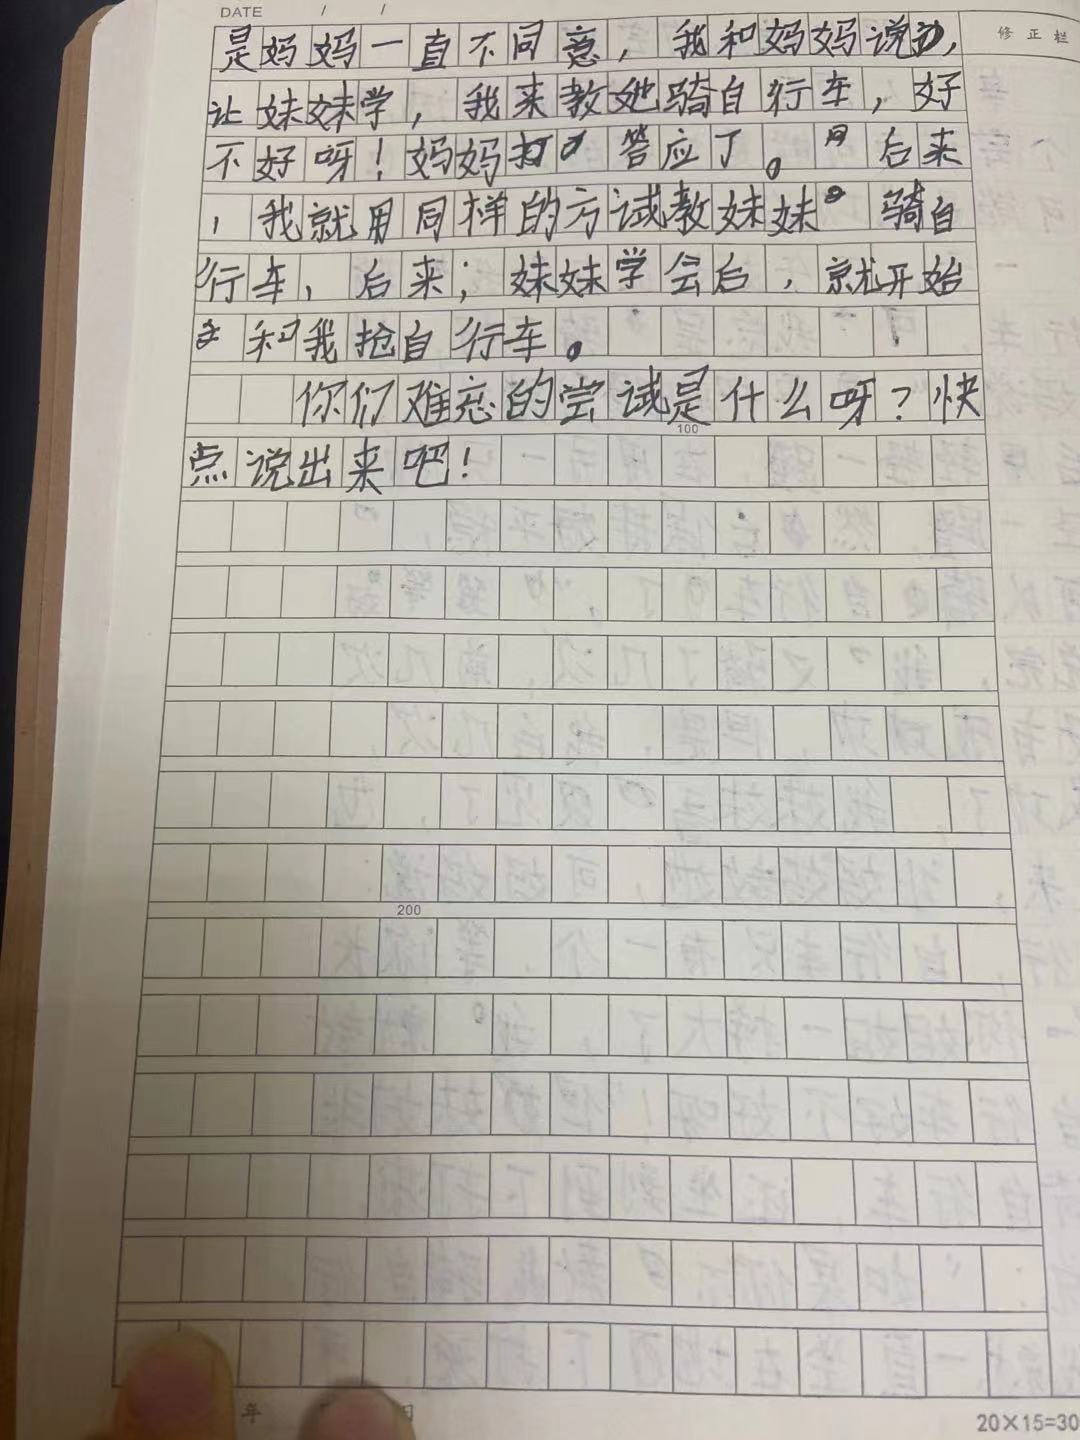 DATE / /
修正栏
是妈妈一直不同意，我和妈妈说，
让妹妹学，我来教她骑自行车，好
不好呀！妈妈答应了。后来
，我就用同样的方试教妹妹骑自
行车，后来；妹妹学会后，就开始
和我抢自行车。
你们难忘的尝试是什么呀？快
100
点说出来吧！
200
年
20×15=30